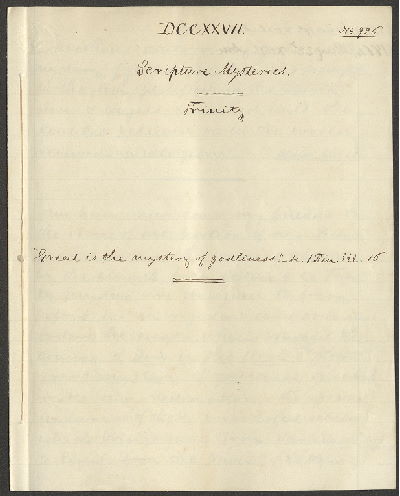 DCCXXVII.
No 925
Scripture Mysteries.
Trinity
"Great is the mystery of godliness" &c. 1 Tim. iii. 16